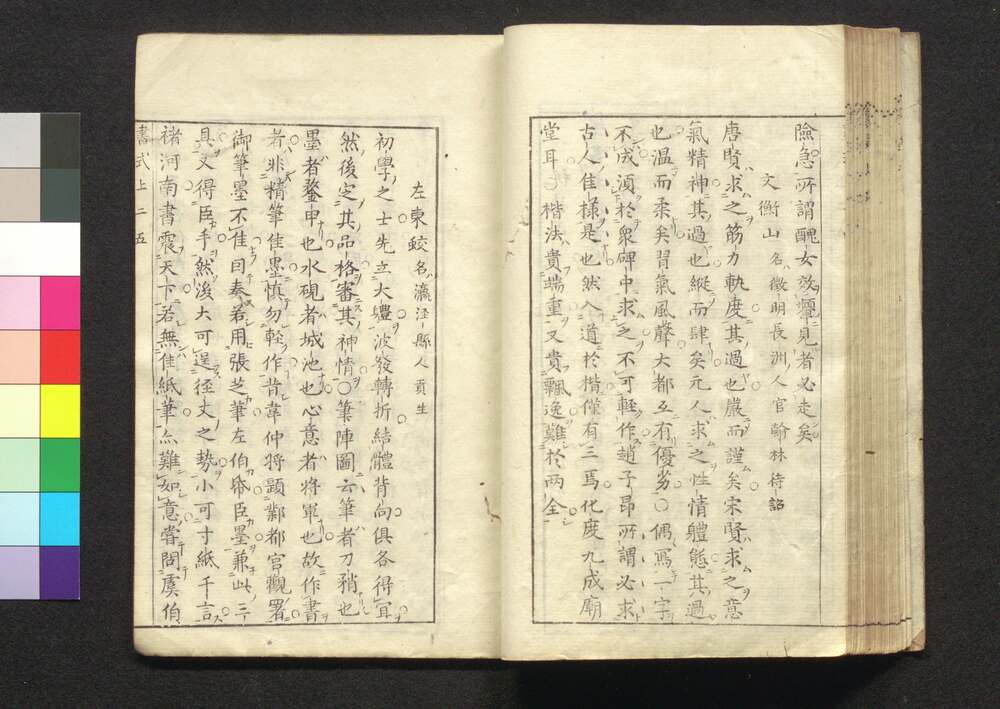 險急所謂醜女效顰見者必走矣
文衡山 名徴明長洲人官翰林待詔
唐賢求之筋力軌度其過也嚴而謹矣宋賢求之意
氣精神其過也縱而肆矣元人求之性情軆態其過
也温而柔矣習氣風聲大都互有優劣○偶寫一字
不成須於衆碑中求之不可輕作趙子昂所謂必求
古人佳様是也然入道於楷僅有三焉化度九成廟
堂耳○楷法貴端重又貴飄逸難於兩全
左東蛟 名瀛涇縣人貢生
初學之士先立大軆波發轉折結體背向俱各得宜
然後定其品格審其神情○筆陣圖云筆者刀矟也
墨者鍪甲也水硯者城池也心意者將軍也故作書
者非精筆佳墨慎勿輕作昔韋仲将題鄴都宮觀署
御筆墨不佳因奏若用張芝筆左伯帋臣墨兼此三
具又得臣手然後大可逞徑丈之勢小可寸紙千言
褚河南書震天下若無佳紙筆亦難如意嘗問虞伯
書式上 二五